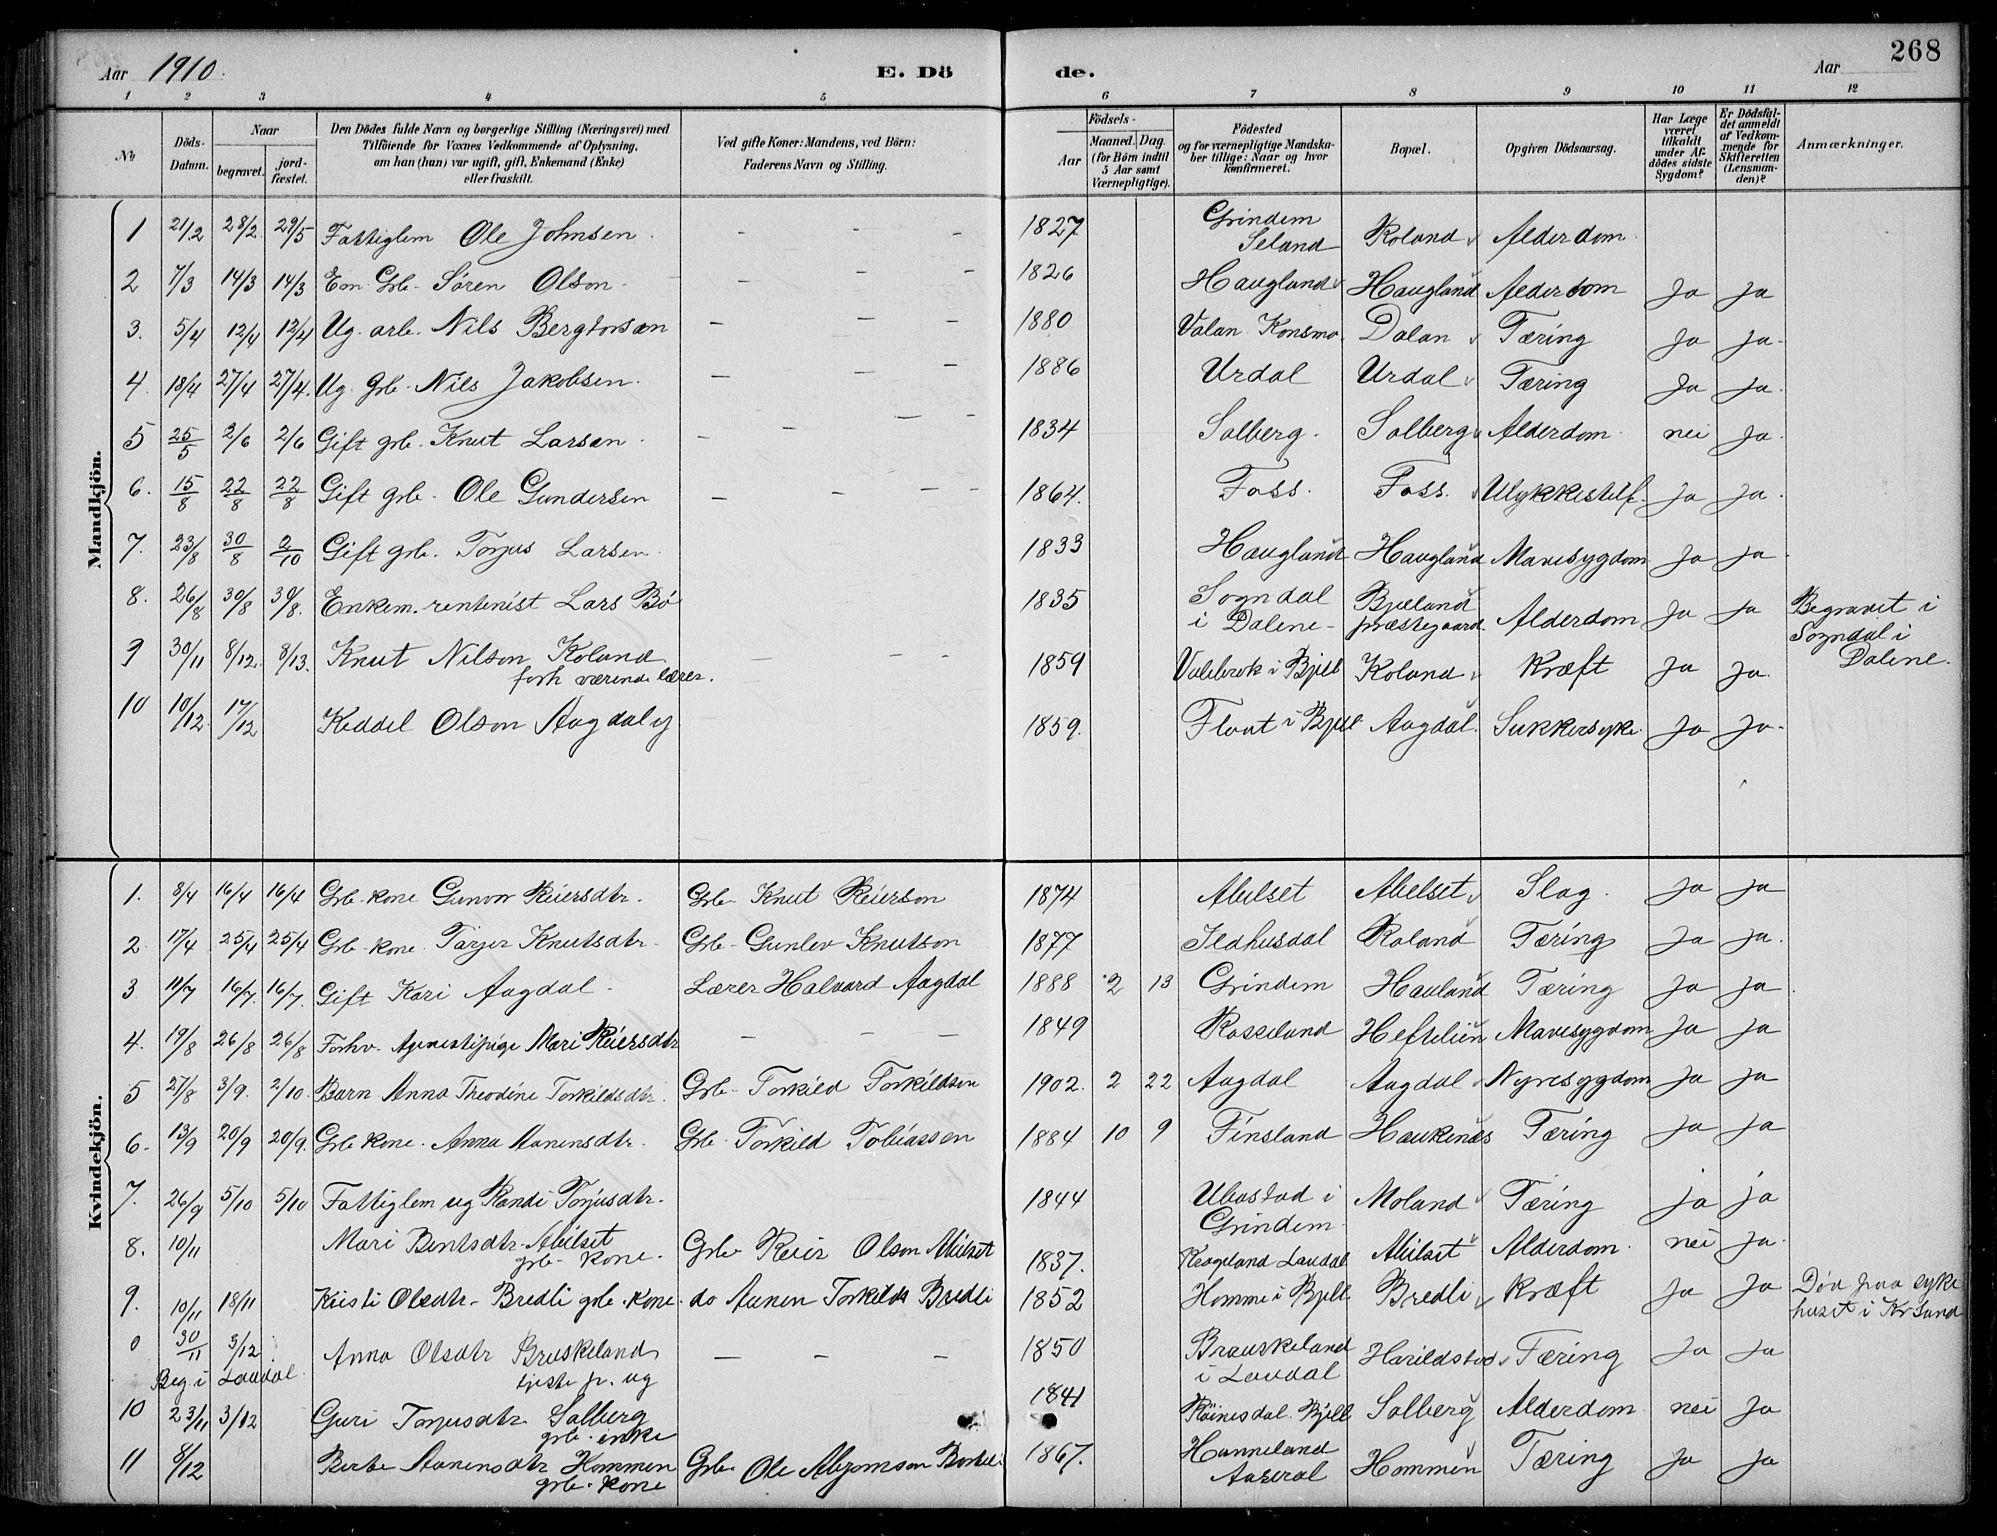 268
Aar 1910. E. Dö de. Aar
1 2 3 4 5 6 7 8 9 10 11 12
№ Döds-Datum. Naar begravet. jord-fæstet. Den Dödes fulde Navn og borgerlige Stilling (Næringsvei) med Tilföiende for Voxnes Vedkommende af Oplysning, om han (hun) var ugift, gift, Enkemand (Enke) eller fraskilt. Ved gifte Koner: Mandens, ved Börn: Faderens Navn og Stilling. Födsels- Aar Maaned. Dag. (for Börn indtil 5 Aar samt Værnepligtige). Födested og for værnepligtige Mandskaber tillige: Naar og hvor konfirmeret. Bopæl. Opgiven Dödsaarsag. Har Læge været tilkaldt under Afdödes sidste Sygdom? Er Dödsfaldet anmeldt af Vedkommende for Skifteretten (Lensmanden)? Anmærkninger.
Mandkjön.
1 21/2 28/2 29/5 Fattiglem Ole Johnsen. – – – 1827 Grindem Seland Roland Alderdom
2 7/3 14/3 14/3 Em. Grb. Sören Olson. – – 1826 Haugland Haugland Alderdom Ja Ja
3. 5/4 12/4 12/4 Ug. arb. Nils Bergtorsen – – – 1880 Valan Konsmo Dalan Tæring Ja Ja.
4. 18/4 27/4 27/4. Ug. Grb. Nils Jakobsen. – – – 1886 Urdal Urdal Tæring Ja Ja.
5 25/5 2/6 2/6 Gift grb. Knut Larsen. – – – – 1834 Solberg. Solberg Alderdom nei Ja.
6. 15/8 22/8 22/8 Gift grb. Ole Gundersen – – – – 1864. Foss. Foss. Ulykkestilf. Ja Ja.
7. 23/8 30/8 2/10 Gift grb. Torjus Larsen. 1833 Haugland Haugland Mavesygdom Ja Ja
8. 26/8 30/8 30/8. Enkem. rentenist Lars Bö 1835 Sogndal i Dalene – Bjelland præstegaard. Alderdom Ja Ja Begravet i Sogndal i Dalene.
9 30/11 8/12. 8/13. Knut Nilson Koland forh værende lærer. – – 1859 i Bjell Koland Kræft Ja Ja.
10 10/12. 17/12 Keddel Olson Aagdal g 1859. Flaat i Bjell Aagdal. Sukkersyke. Ja Ja.
Kvindekjön.
1. 8/4 16/4 16/4 Grb. kone Gunvor Reiersdtr. Grb. Knut Reierson 1874 Abelset Abelset Slag. Ja Ja
2. 17/4 25/4 25/4 Grb. kone. Tarjer Knutsdtr. Grb. Gunlev Knutson 1877 Ildhusdal Roland Tæring Ja Ja.
3 11/7 16/7. 16/7. Gift Kari Aagdal. Lærer Halvard Aagdal 1888 2 13 Grindem Hauland Tæring Ja Ja
4. 19/8 26/8 26/8 Forhv. Mari Reiersdtr – – – 1849 Rosseland Heftelien Mavesygdom Ja Ja
5 27/8 3/9. 2/10. Barn Anna Theodine Torkildsdtr. Grb. Torkild Torkildsen 1902. 2 22 Aagdal Aagdal Nyresygdom Ja Ja
6. 13/9 20/9 20/9. Grb. kone. Anna Aanensdtr. Grb. Torkild Tobiassen 1884 10 9 Finsland Haukenæs Tæring Ja Ja
7. 26/9 5/10 5/10 Fattiglem ug Randi Torjusdtr. 1844 Ubostad i Grindem Moland Tæring ja ja
8. 10/11 Mari Bentsdtr. Abilset grb. kone. Grb. Reier Olson Abilset 1837. Laudal Abilset Alderdom. nei Ja.
9. 10/11 18/11 Kristi Olsdtr. Bredli grb. kone. do Aanen Torkilds Bredli 1852 Homme i Bjell Bredli Kræft Ja Ja Död paa sykehuset i Kr Sand
0 30/11 3/12 Anna Olsdtr Bruskeland tjeste p. ug – – – 1850 Brauskeland i Laudal Harildstad Tæring Ja Ja
Beg i Laudal.
10 23/11 3/12 Guri Torjusdtr. Solberg grb. enke 1841 Röinesdal. Bjell Solberg Alderdom. nei Ja
11 8/12 Berte Aanensdtr Hommen grb. kone Grb. Ole 1867. Hanneland Aaseral Hommen Tæring Ja Ja